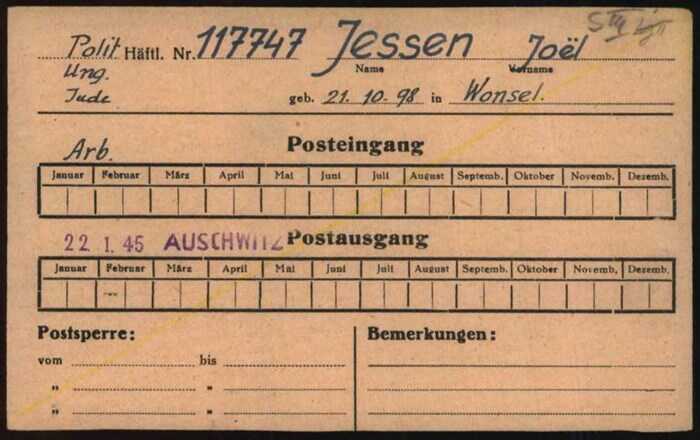 Polit Häftl. Nr. 117747 Jessen Joël
Ung. Name Vorname
Jude geb. 21. 10. 98 in Wonsel.
Arb. Posteingang
Januar Februar März April Mai Juni Juli August Septemb. Oktober Novemb. Dezemb.
22 1. 45 AUSCHWITZ Postausgang
Januar Februar März April Mai Juni Juli August Septemb. Oktober Novemb. Dezemb.
Postsperre: Bemerkungen:
vom bis
" "
" "